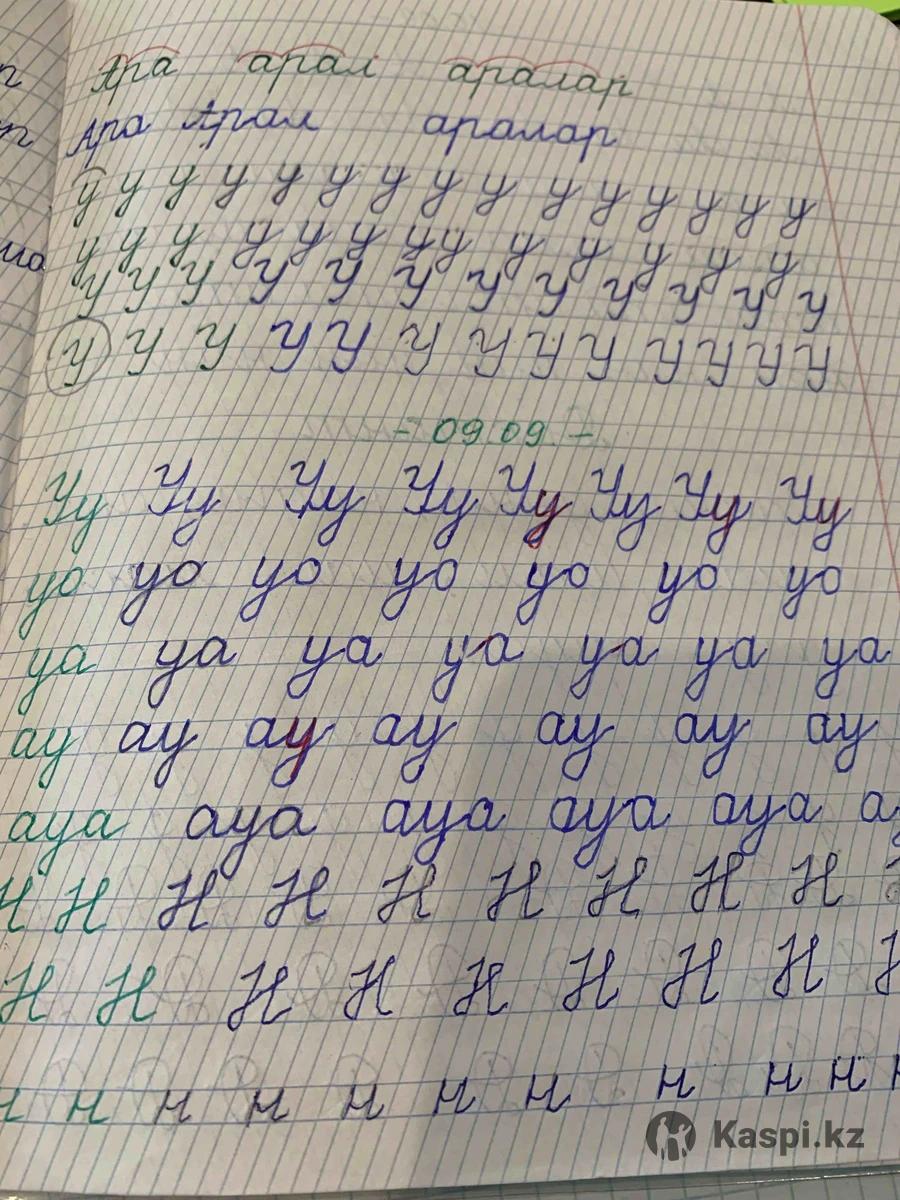 Ара арал аралар
Ара Арал аралар
у у у у у у у у у у у у у у у
у у у у у у у у у у у у у
У У У У У У У У У У У У
У У У У У У У У У У У У У
- 09.09. -
Уу Уу Уу Уу Уу Уу Уу Уу
уо уо уо уо уо уо уо
уа уа уа уа уа уа уа
ау ау ау ау ау ау ау
ауа ауа ауа ауа ауа а
Н Н Н Н Н Н Н Н Н
Н Н Н Н Н Н Н Н Н
н н н н н н н н н н
Kaspi.kz